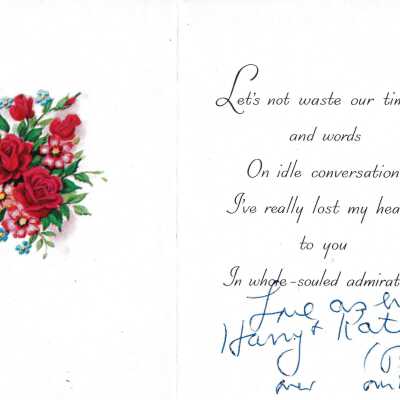 Let's not waste our tim
and words
On idle conversation
I've really lost my hea
to you
In whole-souled admirat
Love as
Harry + Kat
over